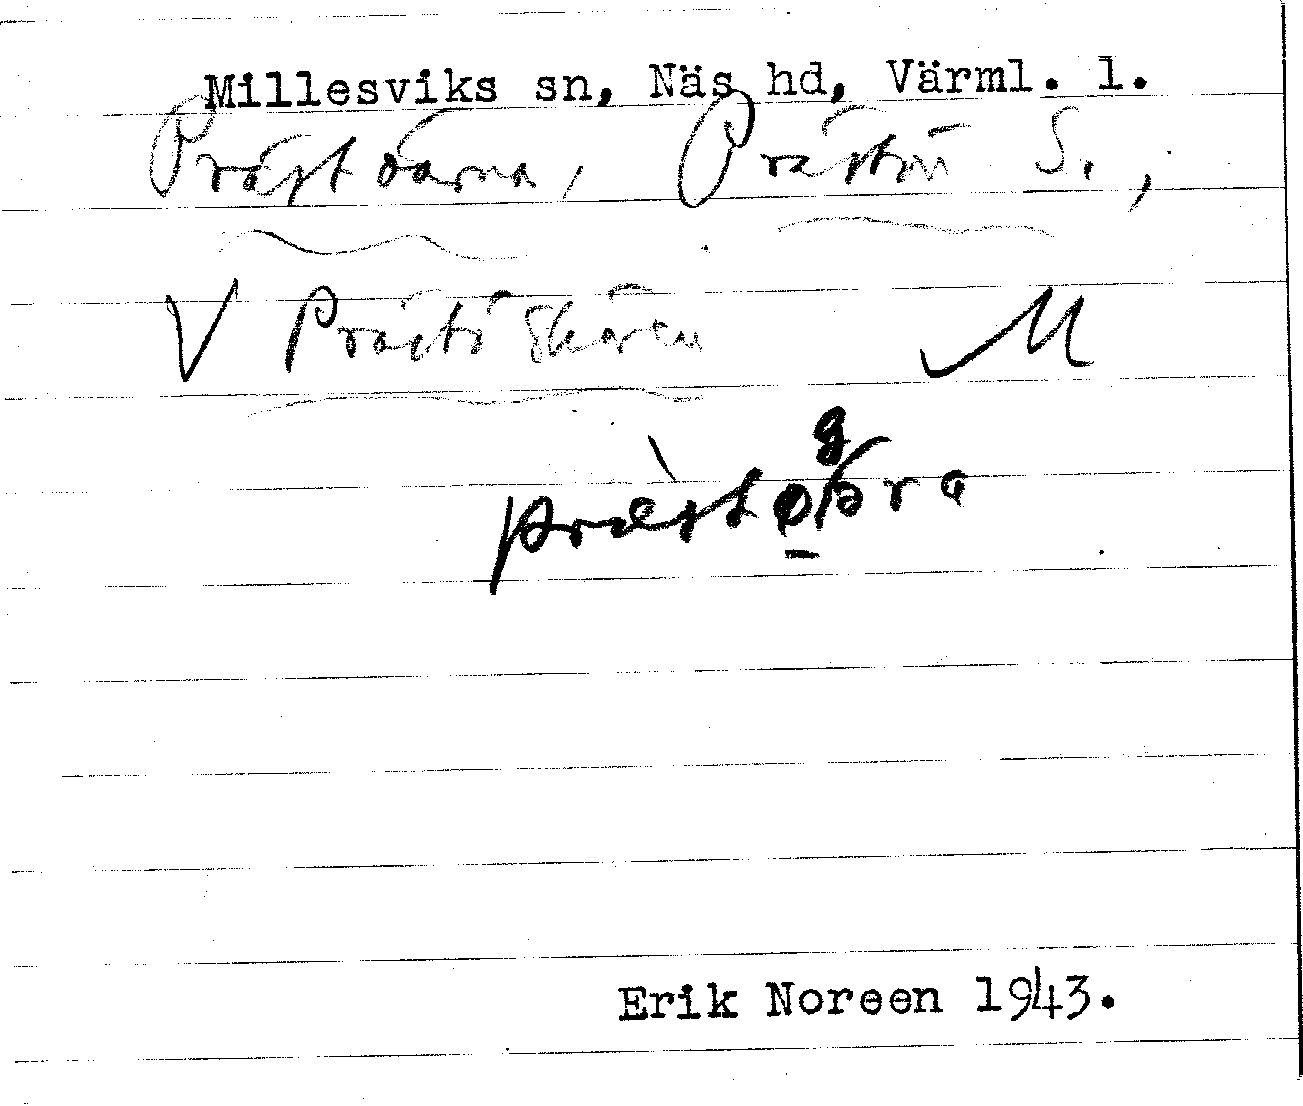 Millesviks sn, Näs hd, Värml. l.
Prästöarna, Prästön S.,
V Prästöskären M
Erik Noreen 1943.